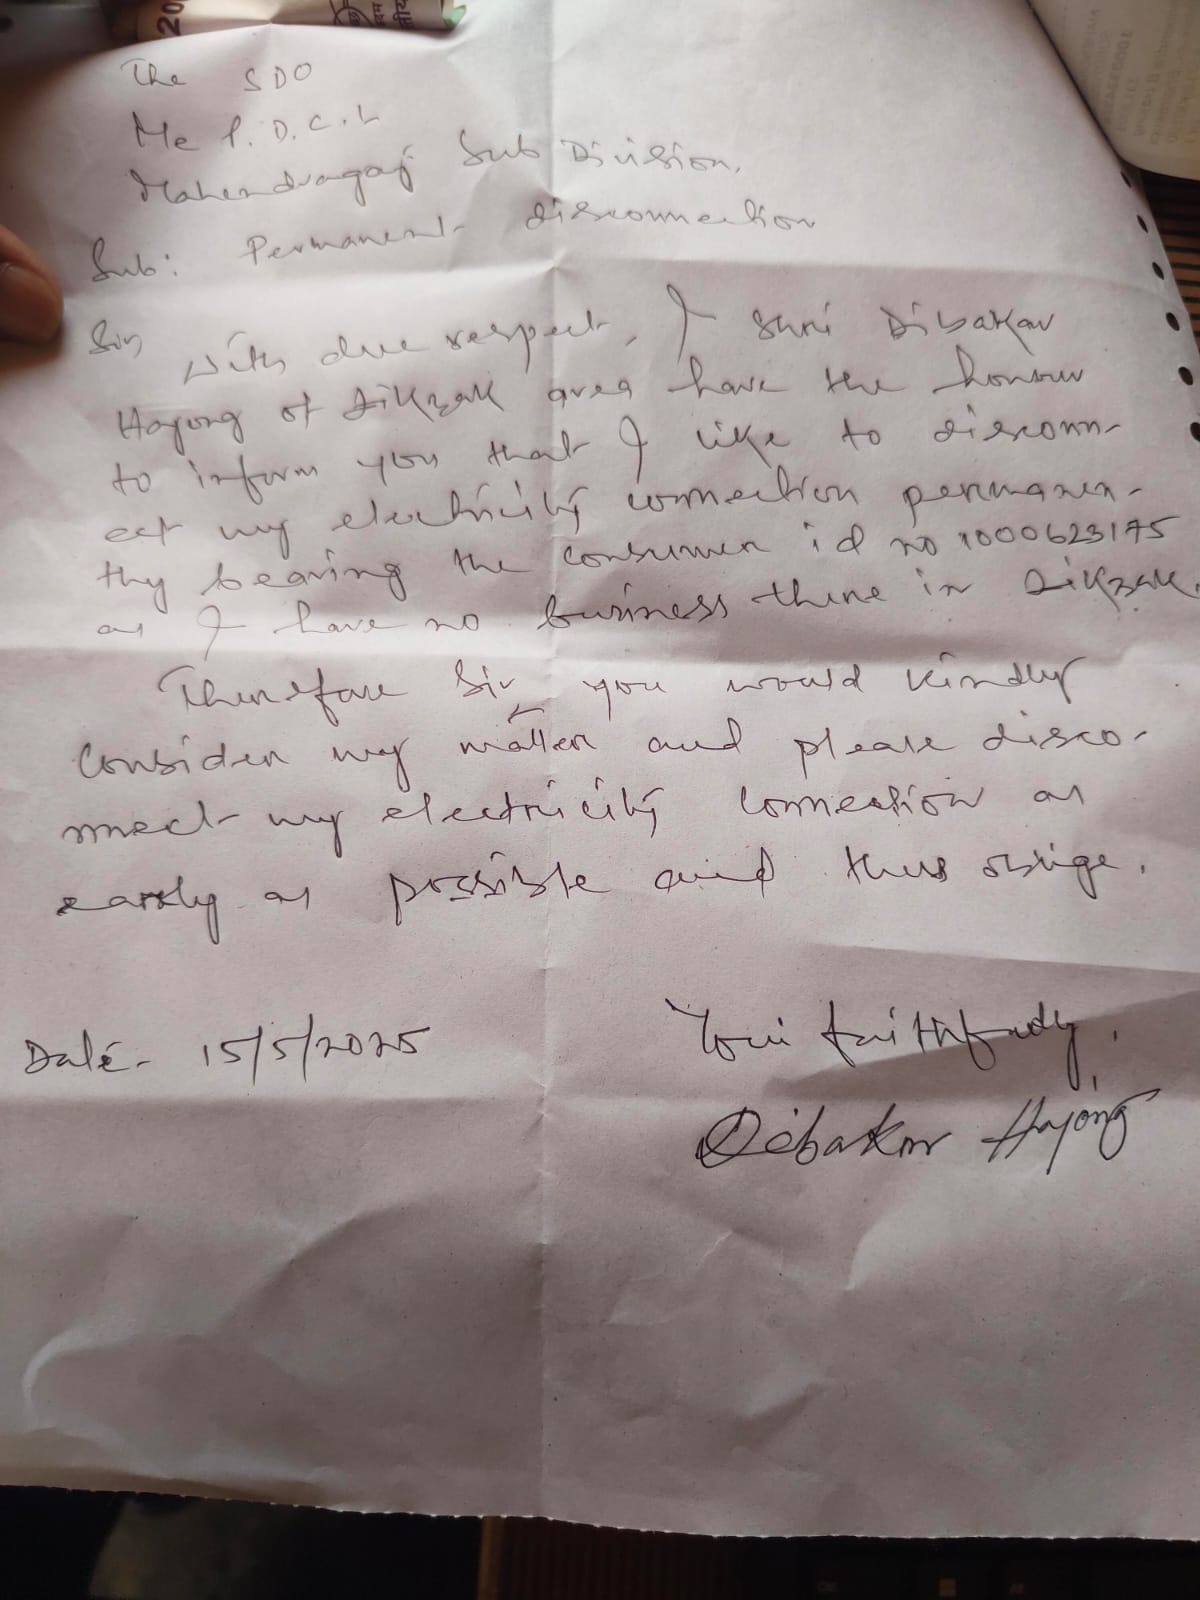 20
The SDO
Me P.D.C.L
Mahendragaj Sub Division.
Sub: Permanent disconnection
Sir
With due respect, I Shri Dibakar
Hajong of Dikzak area have the honour
to inform you that I like to disconn-
ect my electricity connection permanen-
tly bearing the consumer id no 1000623175
as I have no business there in Dikzak.
Therefore Sir you would kindly
consider my matter and please disco-
nnect my electricity connection as
early as possible and thus oblige.
Date- 15/5/2025
Your faithfully,
Dibakar Hajong